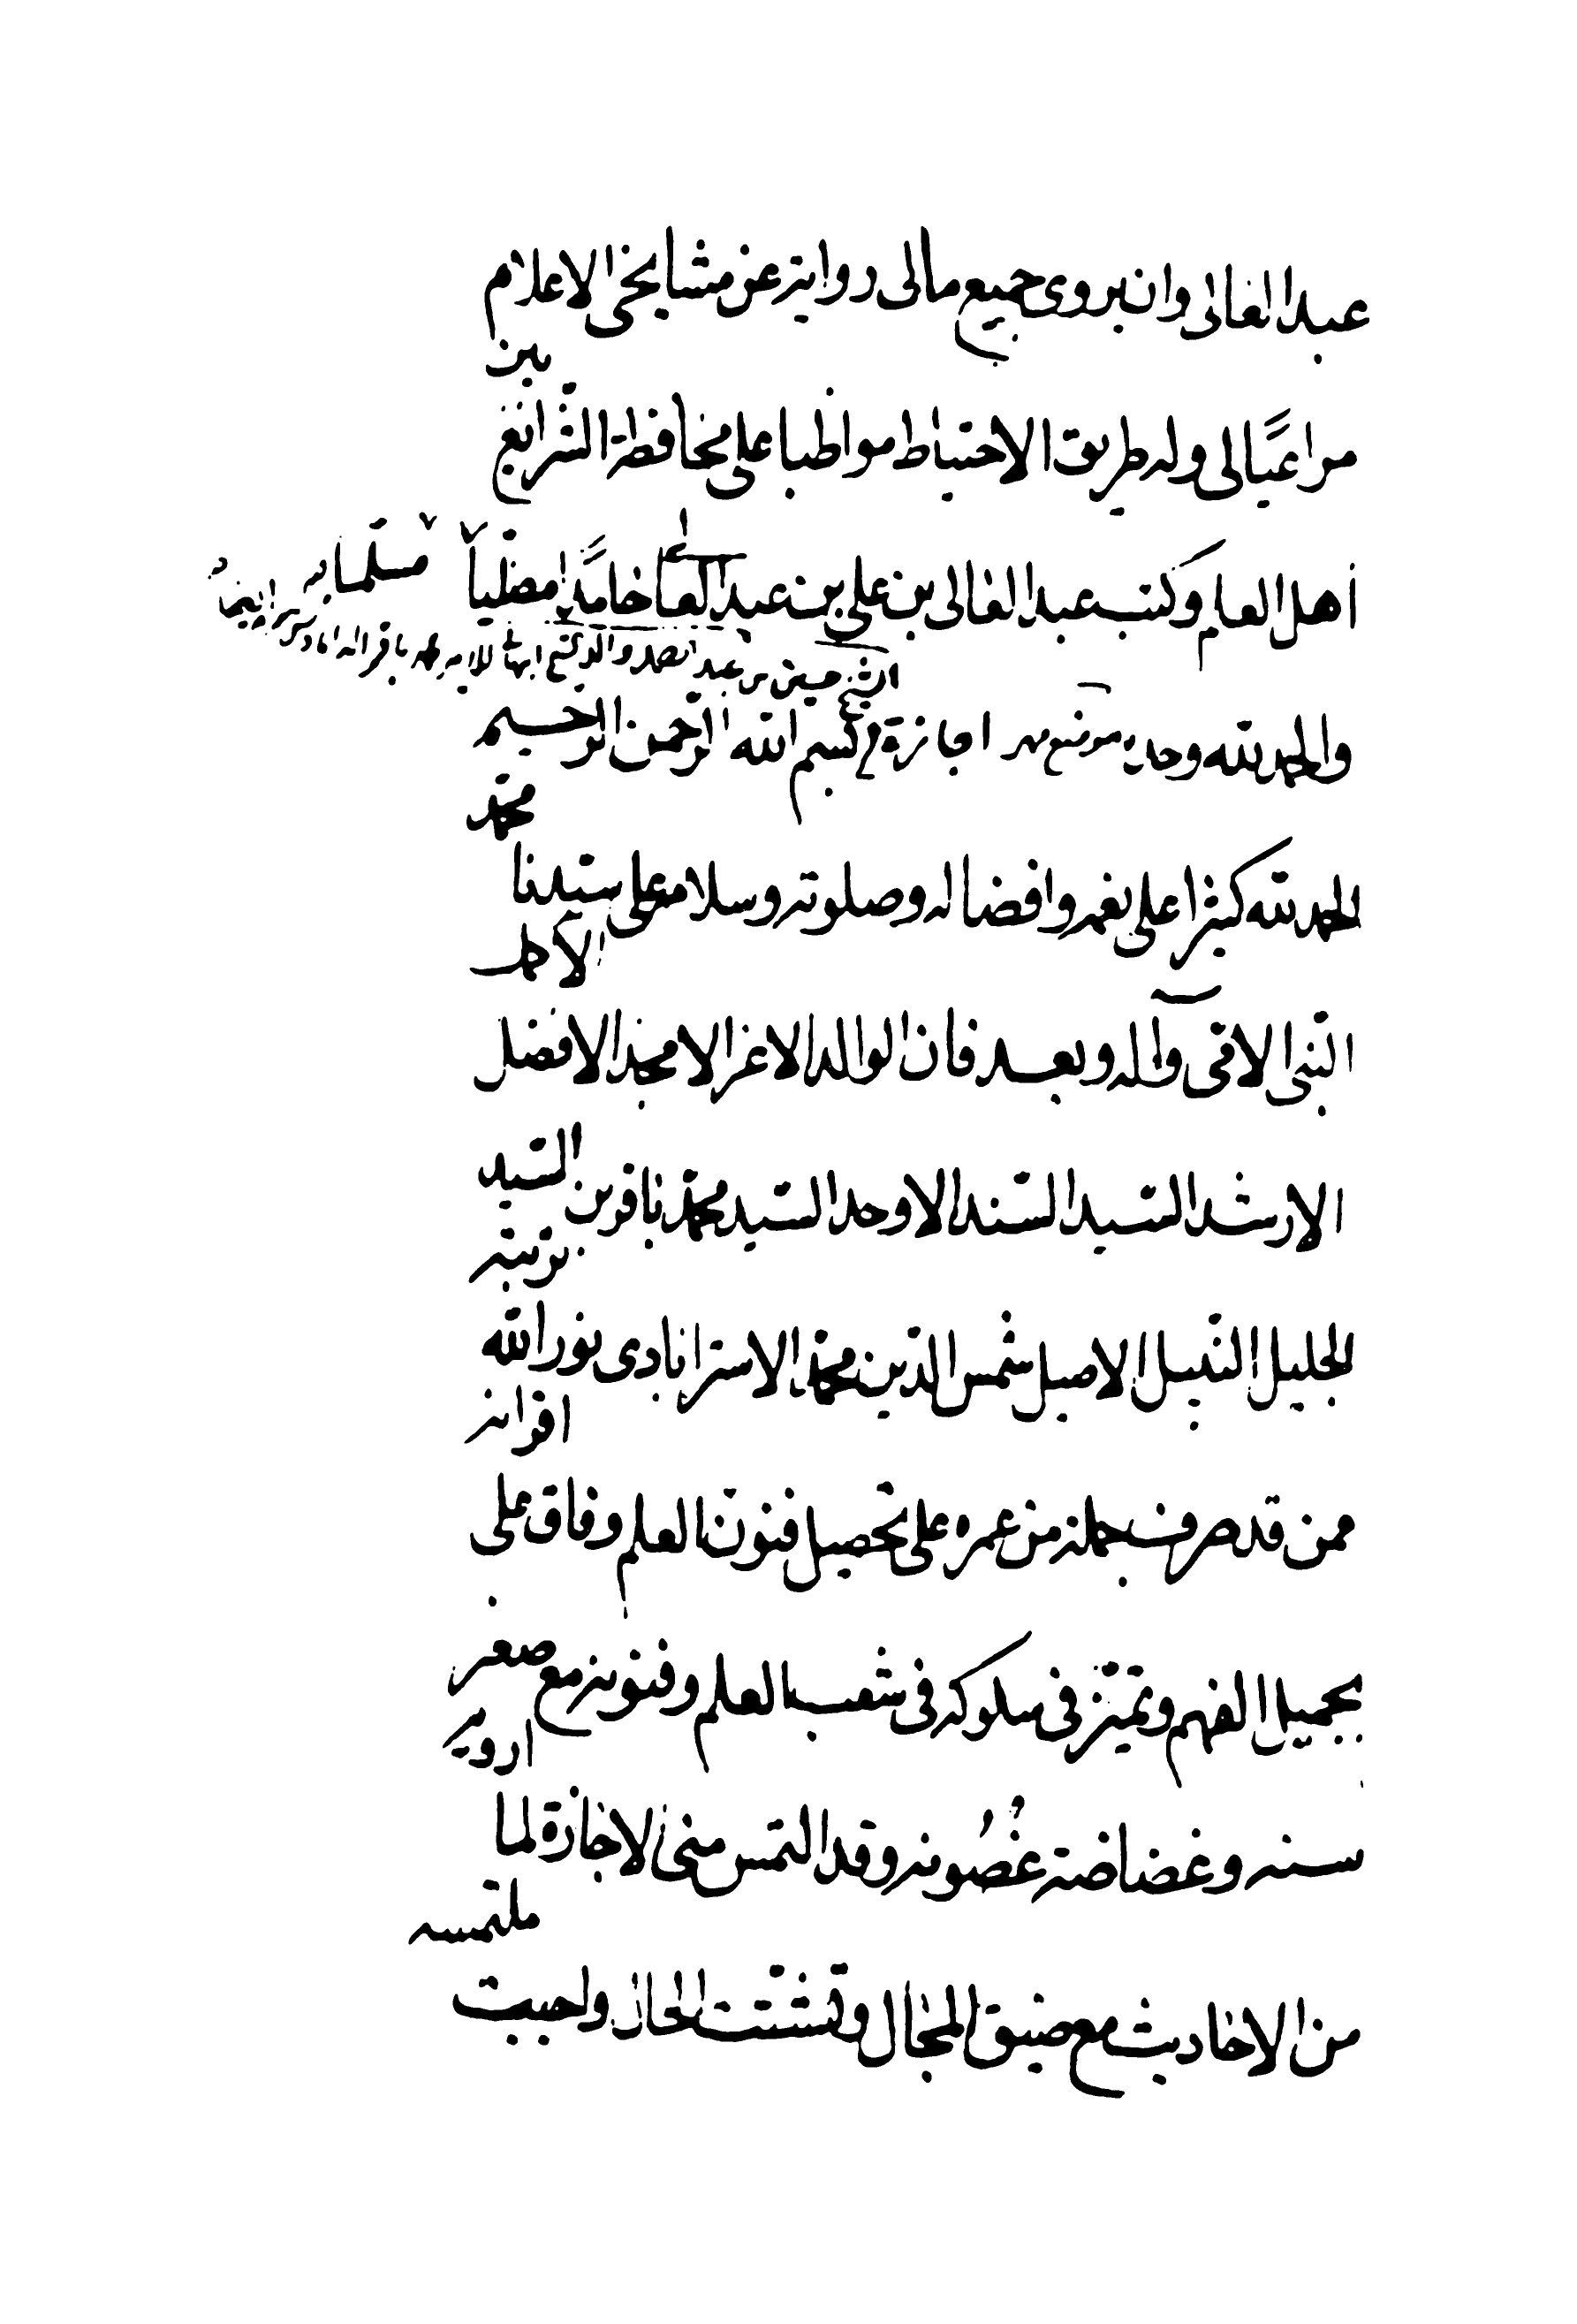 عبد العالى وان يروى جميع مالى روايته عن مشايخى الاعلام
مراعيًا لى وله طريق الاحتياط مواظبا على محافظة الشرائع بين
اهل العلم وكتب عبد العالى بن على بن عبد العالى حامدا مصليا مسلما
الشيخ حسين بن عبد الصمد والد شيخنا البهائى
والحمد لله وحده اجازة بسم الله الرحمن الرحيم
الحمد لله كثيرا على نعمه وافضاله وصلوته وسلامه على سيدنا محمد
النبى الامى وآله وبعد فان الولد الاعز الامجد الافضل الاكمل
الارشد السيد السند الاوحد السيد محمد باقر بن السيد
الجليل النبيل الاصيل شمس الدين محمد الاسترابادى نور الله تربته
ممن قد صرف جملة من عمره على تحصيل فنون العلم وفاق على اقرانه
بجميل الفهم وتميز فى سلوكه فى شعب العلم وفنونه مع صغر
سنه وغضاضة غصونه وقد التمس منى الاجازة لما ارويه
من الاحاديث مع ضيق المجال وتشتت الحال واجبت ملتمسه